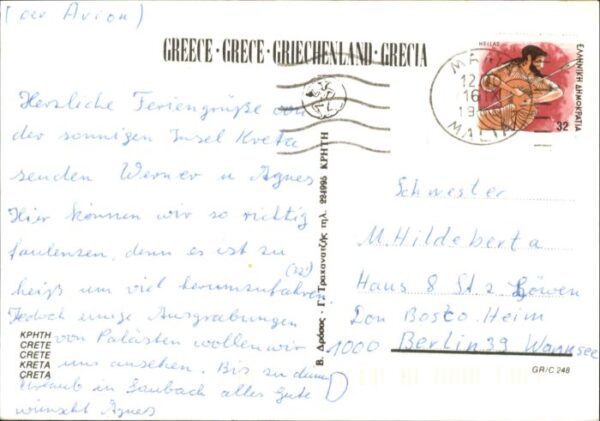 (per Avion)
GREECE · GRECE · GRIECHENLAND · GRECIA
HELLAS
ΕΛΛΗΝΙΚΗ ΔΗΜΟΚΡΑΤΙΑ
32
ΜΑΛΙΑ
MALIA
Herzliche Feriengrüße von
der sonnigen Insel Kreta
senden Werner u Agnes
Hier können wir so richtig
faulenzen, denn es ist zu
heiß (32°) um viel herumzufahren
Jedoch einige Ausgrabungen
von Palästen wollen wir
uns ansehen. Bis zu deinem
Urlaub in Laubach alles Gute
wünscht Agnes
ΚΡΗΤΗ
CRETE
CRETE
KRETA
CRETA
Β. Δρόσος · Γ. Τραχανατζής τηλ. 224996 ΚΡΗΤΗ
Schwester
M. Hildeberta
Haus 8 St 2 Löwen
Don Bosco-Heim
1000 Berlin 39 Wannsee
D
GR/C 248